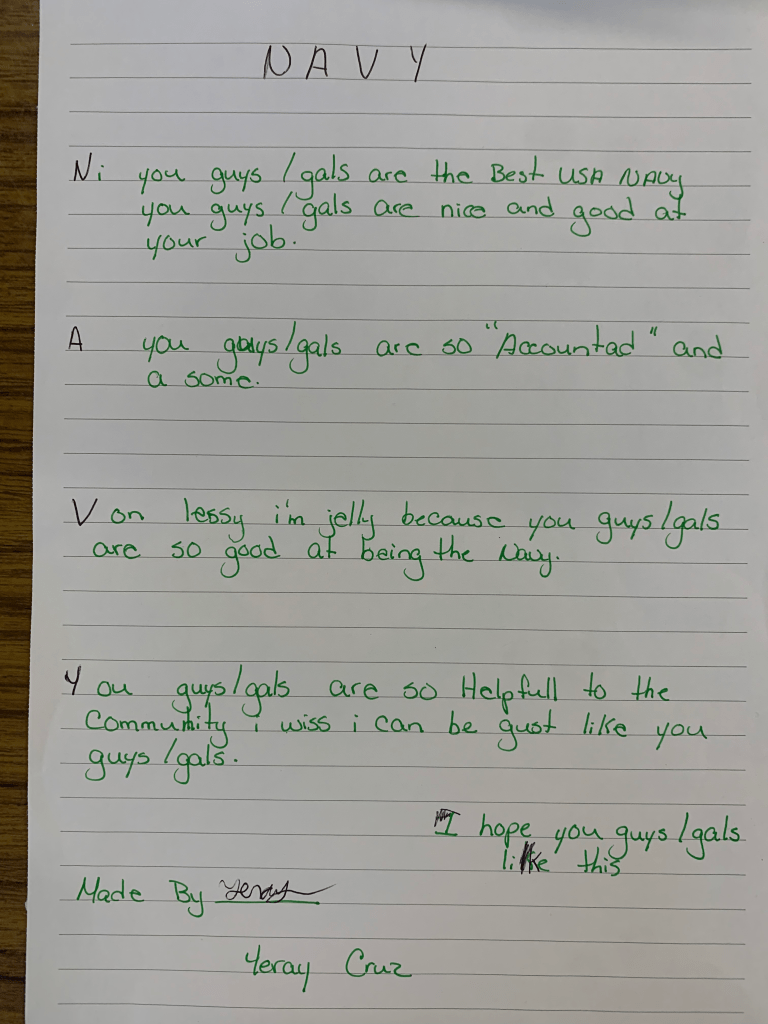 NAVY
Ni you guys / gals are the Best USA NAVY
you guys / gals are nice and good at
your job.
A you guys/gals are so "Accountad" and
a some.
Von lessy i'm jelly because you guys/gals
are so good at being the Navy.
You guys/gals are so Helpfull to the
Community i wiss i can be gust like you
guys/gals.
I hope you guys/gals
like this
Made By Yeray
Yeray Cruz